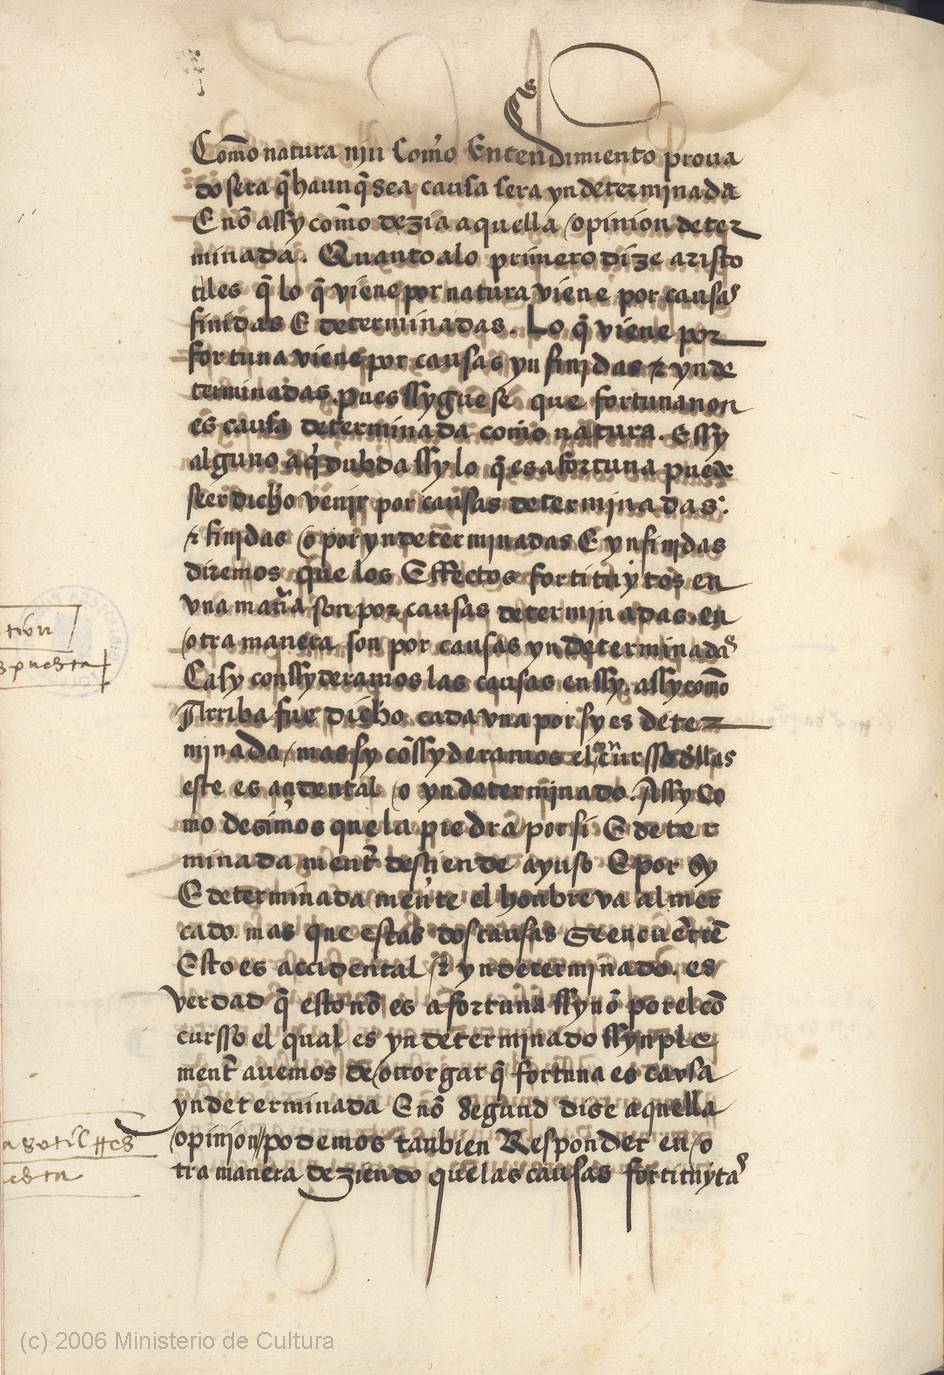 Como natura nin Como Entendimiento prova
do sera q̃ haun q̃ sea causa sera yndeterminada
E nõ assy como dezia aquella opinion deter
minada. Quanto alo primero dize aristo
tiles q̃ lo q̃ viene por natura viene por causas
finidas E determinadas. Lo q̃ viene por
fortuna viene por causas ynfinidas & ynde
terminadas. pues ssyguese que fortuna non
es causa determinada como natura. E ssy
alguno aq̃ dubda ssy lo q̃ es a fortuna puede
seer dicho venir por causas determinadas.
& finidas o por yndeterminadas E ynfinidas
diremos que los Effectos fortituytos en
vna mañã son por causas determinadas. en
otra manera son por causas yndeterminadas
Ca sy conssyderamos las causas en ssy assy como
Arriba fue dicho cada vna por sy es deter
minada mas sy cõssyderamos el cũrsso dellas
este es acidental o yndeterminado. Assy Co
mo desimos que la piedra por si E deter
minada ment̃ desciende ayuso E por sy
E determinada mente el honbre va al mer
cado. mas que estas dos causas se encuẽtrẽ
Esto es accidental & yndeterminado. es
verdad q̃ esto nõ es a fortuna ssynõ por el cõ
cursso el qual es yndeterminado ssynple
ment̃ avemos de otorgar q̃ fortuna es cavsa
yndeterminada E nõ segund dise aquella
opinion podemos tanbien Responder en o
tra manera deziendo que las causas fortituytas
tion
spuesta
a sotil
esta
(c) 2006 Ministerio de Cultura